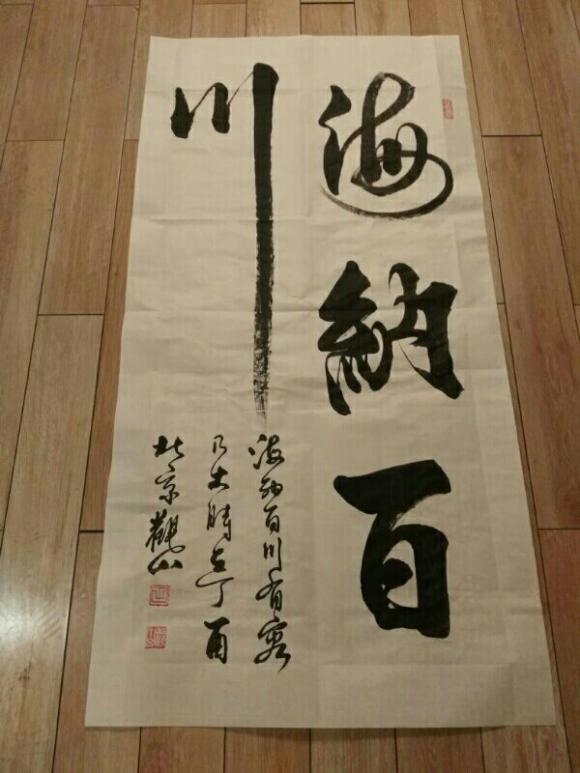 海納百
川
海納百川有容
乃大時在丁酉
北京觀山